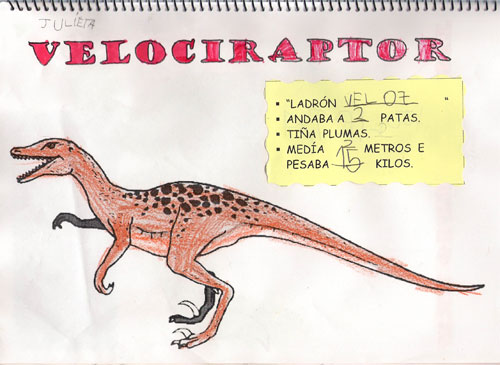 JULIETA
VELOCIRAPTOR
"LADRÓN VELOZ "
ANDABA A 2 PATAS.
TIÑA PLUMAS.
MEDÍA 2 METROS E
PESABA 15 KILOS.